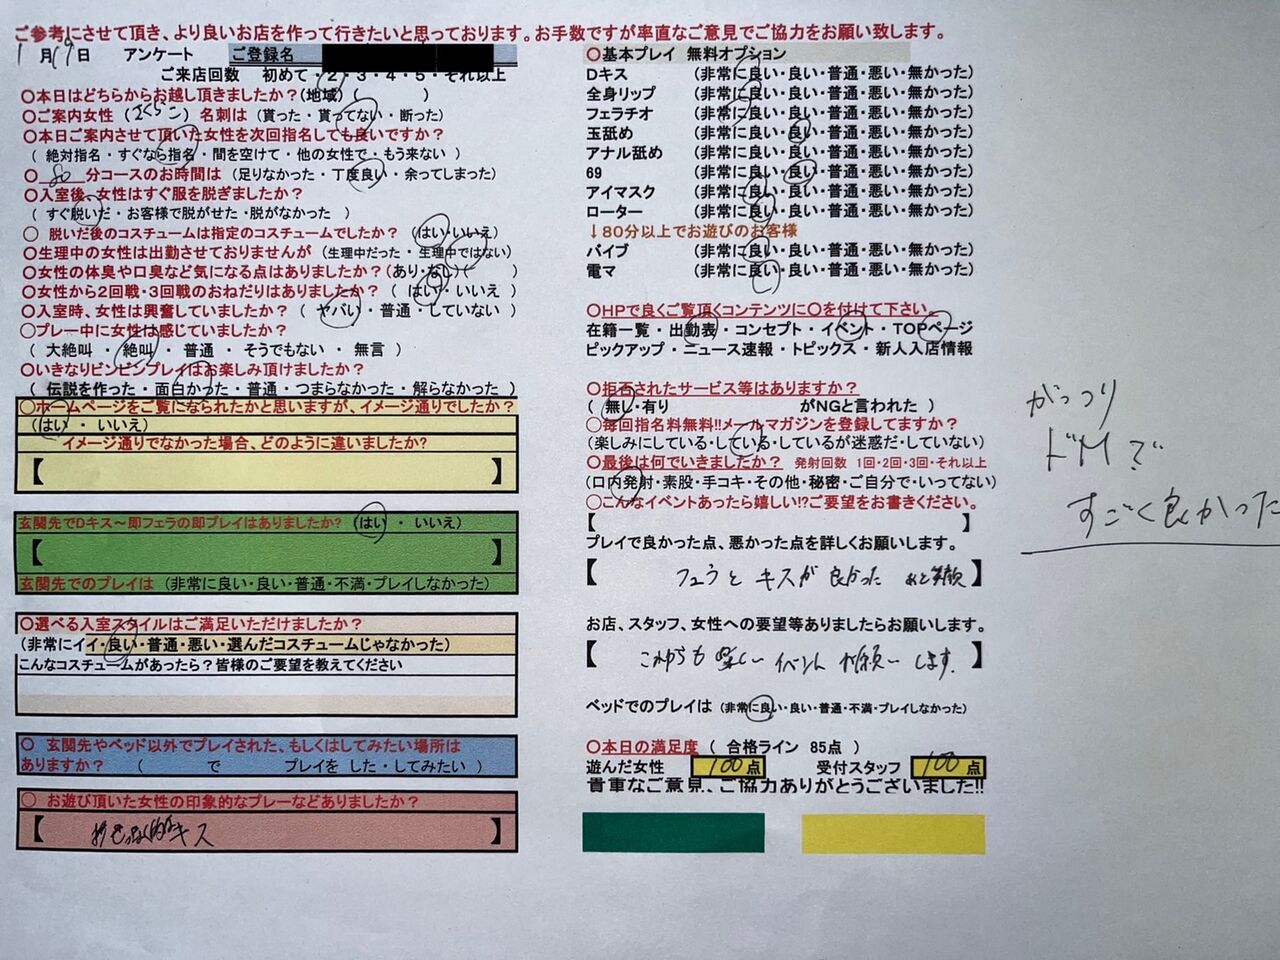 ご参考にさせて頂き、より良いお店を作って行きたいと思っております。お手数ですが率直なご意見でご協力をお願い致します。
1月19日 アンケート ご登録名
ご来店回数 初めて・2・3・4・5・それ以上
〇本日はどちらからお越し頂きましたか？(地域) ( )
〇ご案内女性 (さくらこ) 名刺は (貰った・貰ってない・断った)
〇本日ご案内させて頂いた女性を次回指名しても良いですか？
( 絶対指名・すぐなら指名・間を空けて・他の女性で・もう来ない )
〇 80 分コースのお時間は (足りなかった・丁度良い・余ってしまった)
〇入室後、女性はすぐ服を脱ぎましたか？
( すぐ脱いだ・お客様で脱がせた・脱がなかった )
〇 脱いだ後のコスチュームは指定のコスチュームでしたか？ (はい・いいえ)
〇生理中の女性は出勤させておりませんが (生理中だった・生理中ではない)
〇女性の体臭や口臭など気になる点はありましたか？(あり・なし)( )
〇女性から2回戦・3回戦のおねだりはありましたか？ ( はい・いいえ )
〇入室時、女性は興奮していましたか？ ( ヤバい・普通・していない )
〇プレー中に女性は感じていましたか？
( 大絶叫・絶叫・普通・そうでもない・無言 )
〇いきなりビンビンプレイはお楽しみ頂けましたか？
( 伝説を作った・面白かった・普通・つまらなかった・解らなかった )
〇ホームページをご覧になられたかと思いますが、イメージ通りでしたか？
(はい ・ いいえ)
イメージ通りでなかった場合、どのように違いましたか?
【 】
玄関先でDキス～即フェラの即プレイはありましたか? (はい ・ いいえ)
【 】
玄関先でのプレイは (非常に良い・良い・普通・不満・プレイしなかった)
〇選べる入室スタイルはご満足いただけましたか？
(非常にイイ・良い・普通・悪い・選んだコスチュームじゃなかった)
こんなコスチュームがあったら？皆様のご要望を教えてください
〇 玄関先やベッド以外でプレイされた、もしくはしてみたい場所は
ありますか？ ( で プレイを した・してみたい )
〇 お遊び頂いた女性の印象的なプレーなどありましたか？
【 キス 】
〇基本プレイ 無料オプション
Dキス (非常に良い・良い・普通・悪い・無かった)
全身リップ (非常に良い・良い・普通・悪い・無かった)
フェラチオ (非常に良い・良い・普通・悪い・無かった)
玉舐め (非常に良い・良い・普通・悪い・無かった)
アナル舐め (非常に良い・良い・普通・悪い・無かった)
69 (非常に良い・良い・普通・悪い・無かった)
アイマスク (非常に良い・良い・普通・悪い・無かった)
ローター (非常に良い・良い・普通・悪い・無かった)
↓80分以上でお遊びのお客様
バイブ (非常に良い・良い・普通・悪い・無かった)
電マ (非常に良い・良い・普通・悪い・無かった)
〇HPで良くご覧頂くコンテンツに〇を付けて下さい。
在籍一覧・出勤表・コンセプト・イベント・TOPページ
ピックアップ・ニュース速報・トピックス・新人入店情報
〇拒否されたサービス等はありますか？
( 無し・有り がNGと言われた )
〇毎回指名料無料!!メールマガジンを登録してますか？
(楽しみにしている・している・しているが迷惑だ・していない)
〇最後は何でいきましたか？ 発射回数 1回・2回・3回・それ以上
(口内発射・素股・手コキ・その他・秘密・ご自分で・いってない)
〇こんなイベントあったら嬉しい!?ご要望をお書きください。
【 】
プレイで良かった点、悪かった点を詳しくお願いします。
【 フェラと キスが 良かった あと笑顔 】
お店、スタッフ、女性への要望等ありましたらお願いします。
【 これからも 楽しい イベント お願い します。 】
ベッドでのプレイは (非常に良い・良い・普通・不満・プレイしなかった)
〇本日の満足度 ( 合格ライン 85点 )
遊んだ女性 100点 受付スタッフ 100点
貴重なご意見、ご協力ありがとうございました!!
がっつり
ドMで
すごく良かった